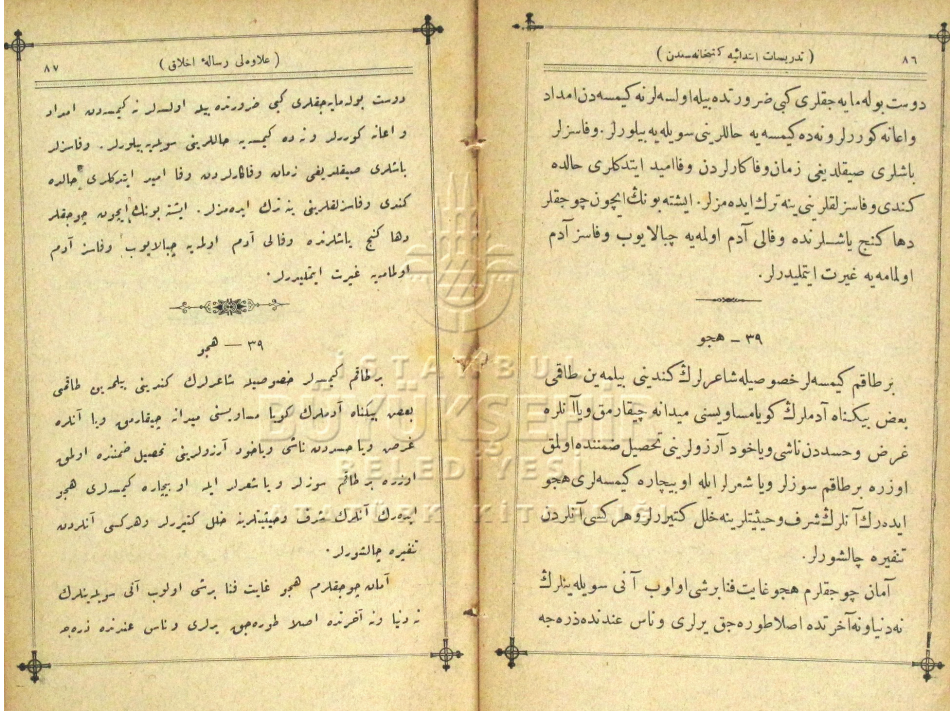 ٨٦
( تدریسات ابتدائیه كتبخانه‌سندن )
دوست بوله‌مایه‌جقلری كبی ضرورتده بیله اولسه‌لر نه كیمسه‌دن امداد
واعانه كوررلر ونه‌ده كیمسه‌یه حاللرینی سویله‌یه بیلورلر. وفاسزلر
باشلری صیقلدیغی زمان وفاكارلردن وفا امید ایتدكلری حالده
كندی وفاسزلقلرینی ینه ترك ایده‌مزلر. ایشته بونڭ ایچون چوجقلر
دها كنج یاشلرنده وفالی آدم اولمه‌یه چبالایوب وفاسز آدم
اولمامه‌یه غیرت ایتملیدرلر.
٣٩ ـ هجو
بر طاقم كیمسه‌لر خصوصیله شاعرلرڭ كندینی بیلمه‌ین طاقمی
بعض بیكناه آدملرڭ كویا مساویسنی میدانه چیقارمق ویا آنلره
غرض وحسددن ناشی ویاخود آرزولرینی تحصیل ضمننده اولمق
اوزره بر طاقم سوزلر ویا شعرلر ایله او بیچاره كیمسه‌لری هجو
ایده‌رك آنلرڭ شرف وحیثیتلرینه خلل كتیررلر وهركسی آنلردن
تنفیره چالشورلر.
آمان چوجقلرم هجو غایت فنا بر شی اولوب آنی سویله‌ینلرڭ
نه دنیا ونه آخرتده اصلا طوره‌جق یرلری و ناس عندنده ذره‌جه
٨٧
( علاوه‌لی رسالۀ اخلاق )
دوست بوله‌مایه‌جقلری كبی ضرورتده بیله اولسه‌لر نه كیمسه‌دن امداد
و اعانه كوررلر و نه ده كیمسه‌یه حاللرینی سویلیه بیلورلر. وفاسزلر
باشلری صیقلدیغی زمان وفاكارلردن وفا امید ایتدكلری حالده
كندی وفاسزلقلرینی ینه ترك ایده‌مزلر. ایشته بونڭ ایچون چوجقلر
دها كنج یاشلرنده وفالی آدم اولمه‌یه چبالایوب وفاسز آدم
اولمامه‌یه غیرت ایتملیدرلر.
٣٩ — هجو
بر طاقم كیمسه‌لر خصوصیله شاعرلرك كندینی بیلمه‌ین طاقمی
بعض بیكناه آدملرك كویا مساویسنی میدانه چیقارمق ویا آنلره
غرض ویا حسددن ناشی ویاخود آرزولرینی تحصیل ضمننده اولمق
اوزره بر طاقم سوزلر ویا شعرلر ایله او بیچاره كیمسه‌لری هجو
ایده‌رك آنلرك شرف وحیثیتلرینه خلل كتیررلر وهركسی آنلردن
تنفیره چالشورلر.
آمان چوجقلرم هجو غایت فنا بر شی اولوب آنی سویله‌ینلرك
نه دنیا ونه آخرتده اصلا طوره‌جق یرلری وناس عندنده ذره‌جه
İSTANBUL
BÜYÜKŞEHİR
BELEDİYESİ
ATATÜRK KİTAPLIĞI